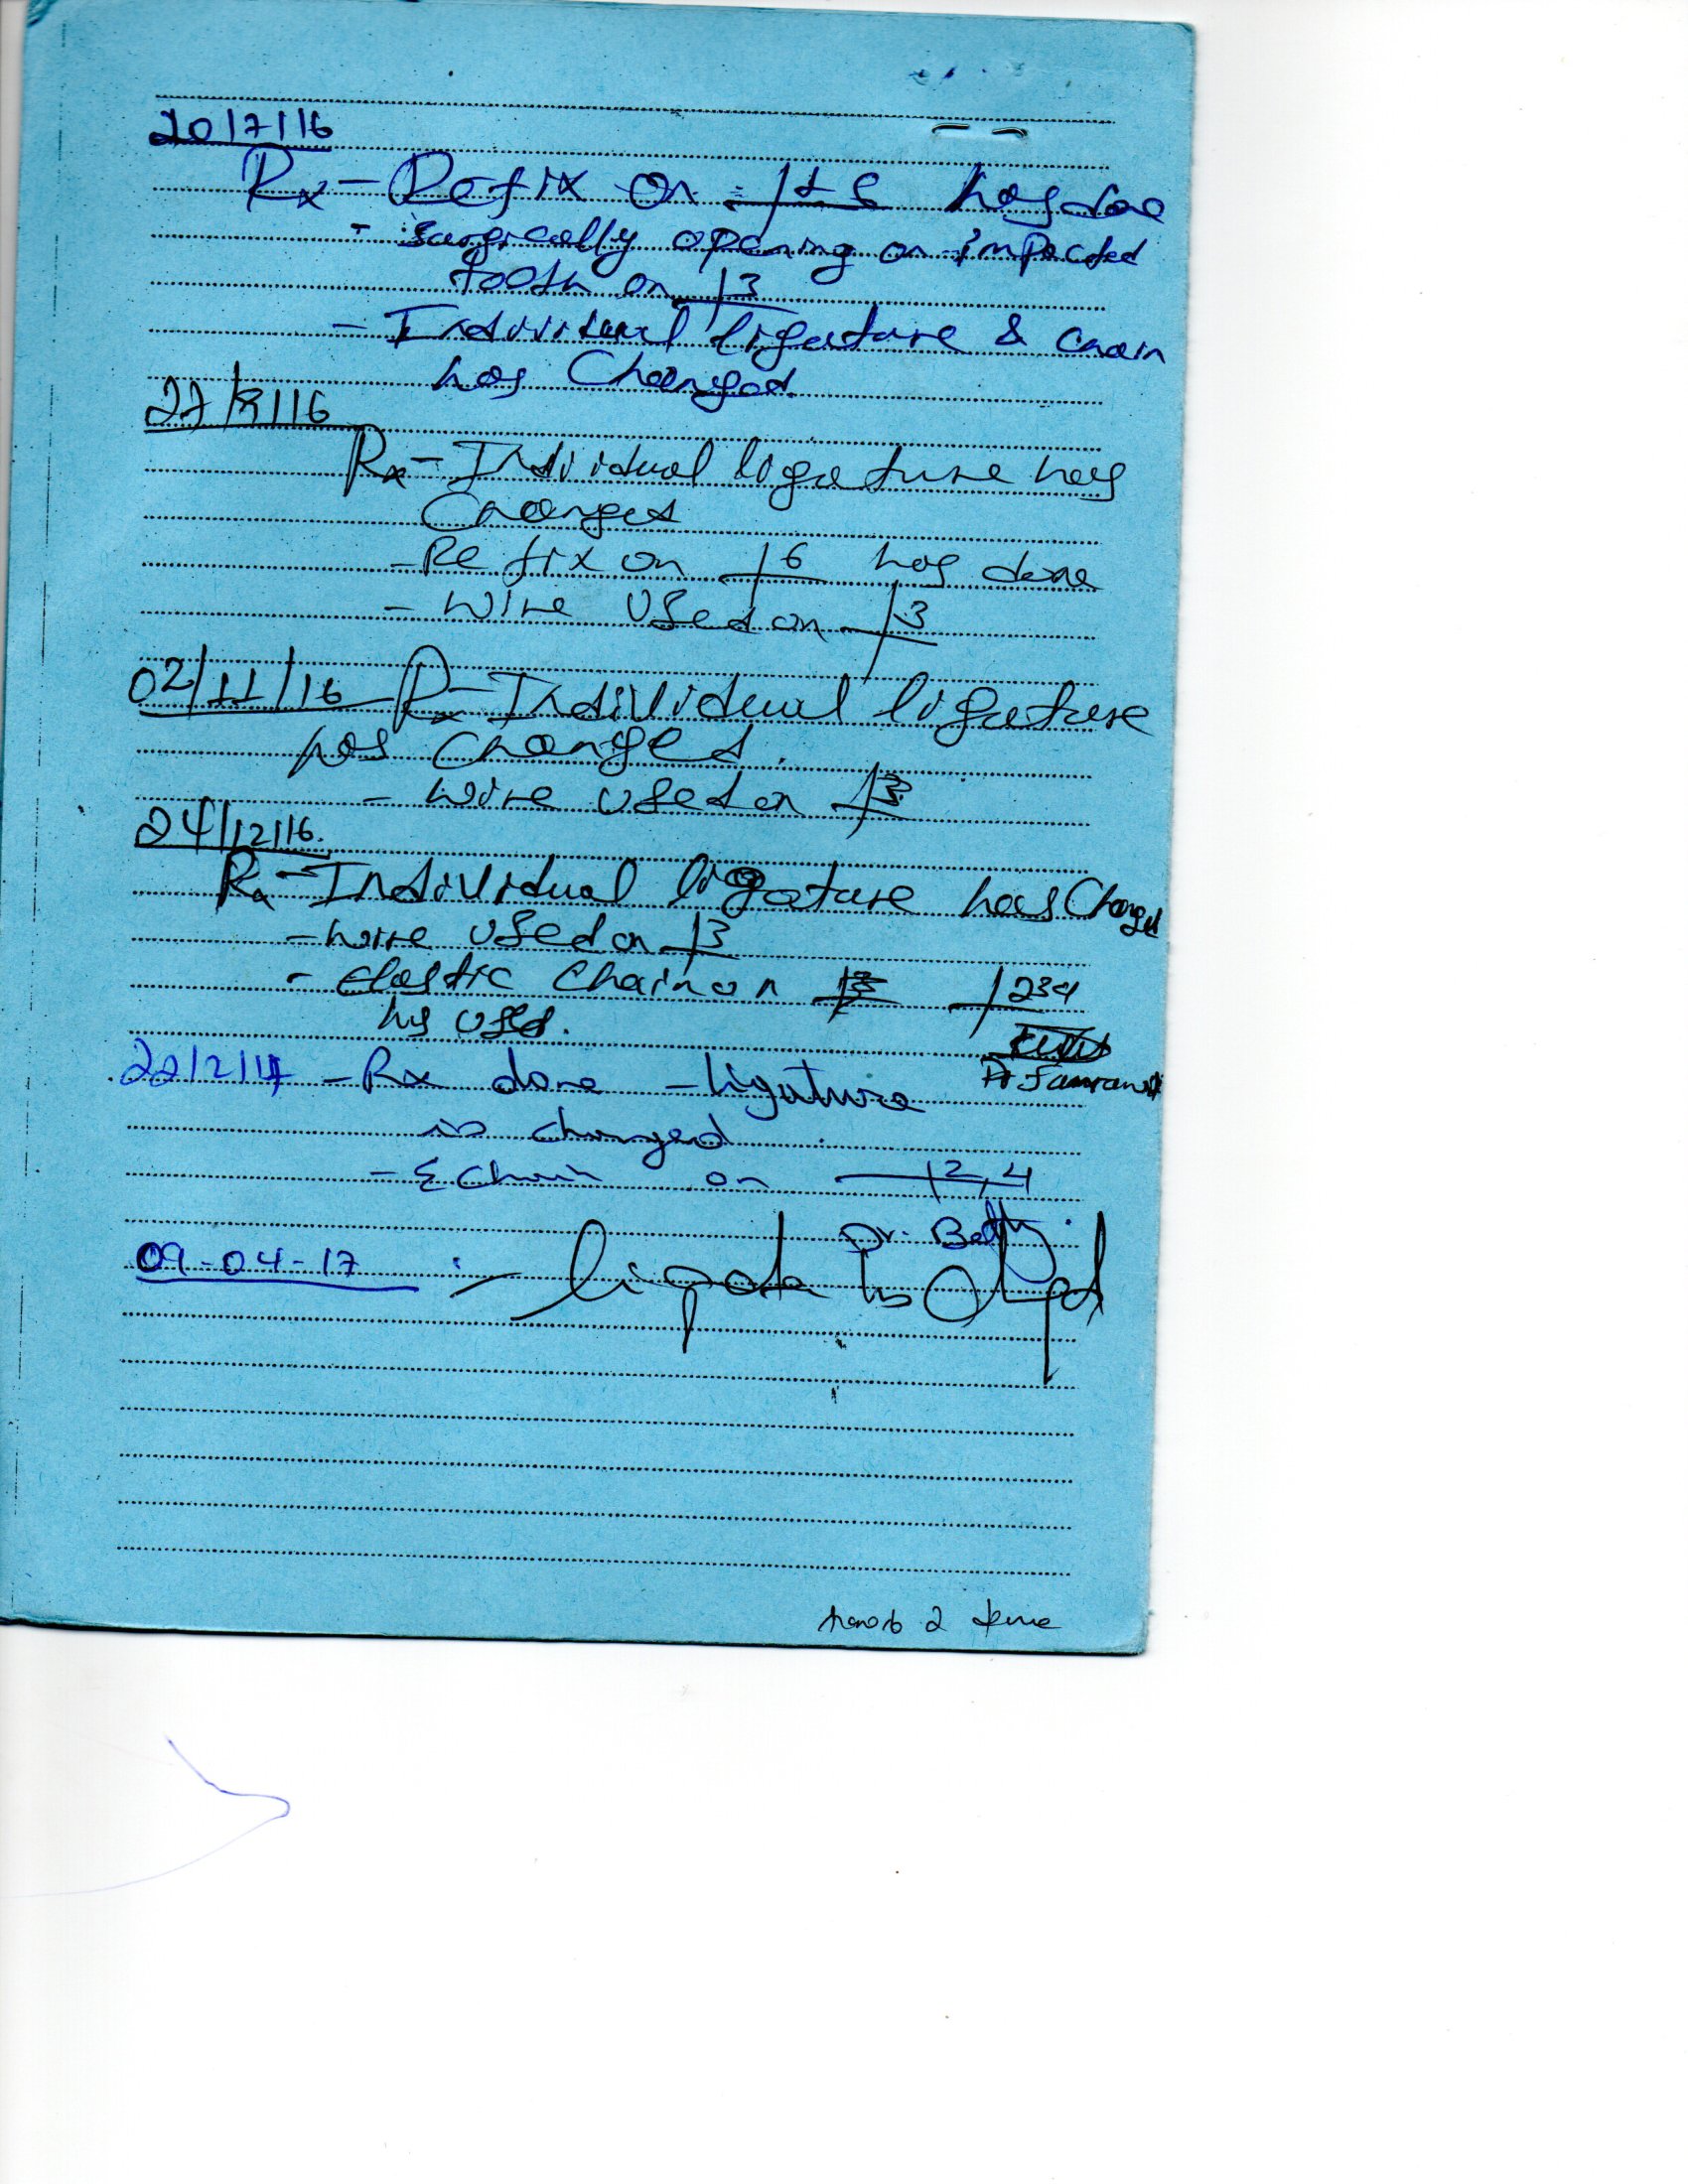 20/7/16
Rx - Refix on has done
- surgically opening on impacted
tooth on 3
- Individual ligature & chain
has Changed.
27/9/16
Rx - Individual ligature has
Changed
- Refix on 6 has done
- wire used on 3
02/11/16 Rx - Individual ligature
has changed.
- wire used on 3
24/12/16.
Rx - Individual ligature has Changed
- wire used on 3
- elastic Chain on 234
has used.
22/2/17 - Rx done - ligature
is changed
- E Chain on 2,4
Dr. Betty
09-04-17 : - ligature is